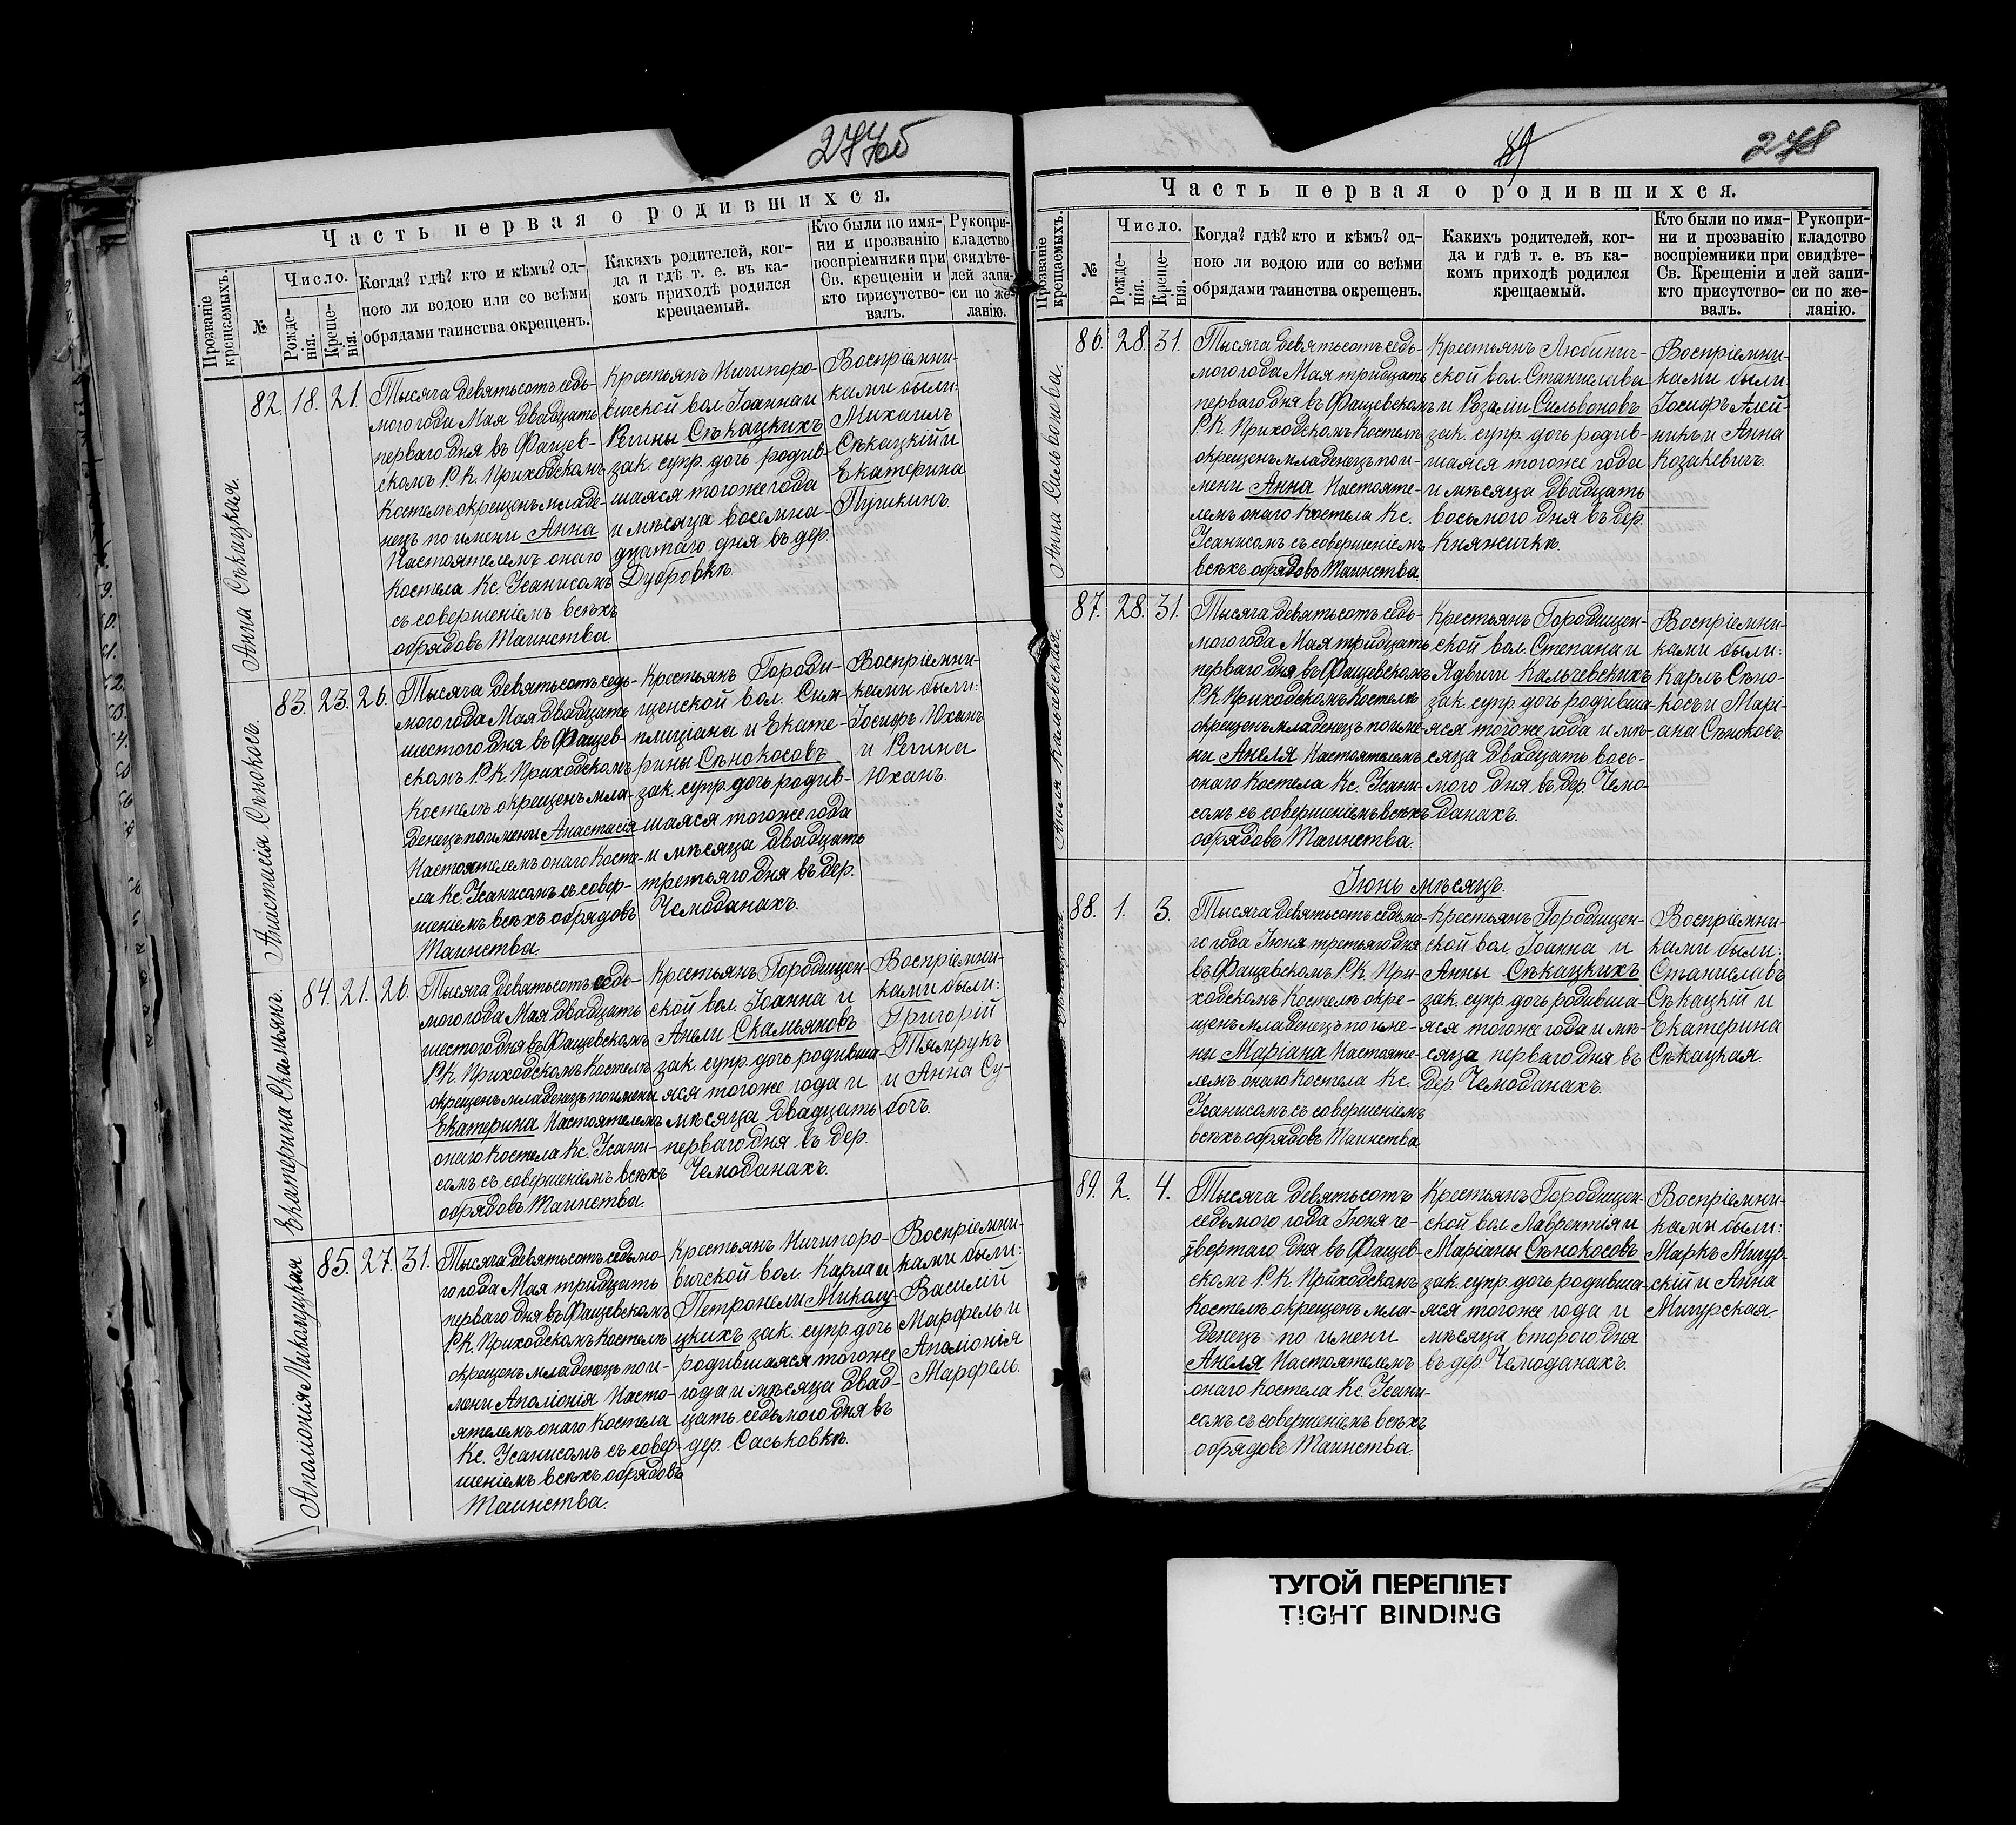 277об
Часть первая о родившихся.
Прозваніе крещаемыхъ.
№
Число.
Рожде-
нія.
Креще-
нія.
Когда? гдѣ? кто и кѣмъ? од-
ною ли водою или со всѣми
обрядами таинства окрещенъ.
Какихъ родителей, ког-
да и гдѣ т. е. въ ка-
комъ приходѣ родился
крещаемый.
Кто были по имя-
ни и прозванію
воспріемники при
Св. крещеніи и
кто присутство-
валъ.
Рукопри-
кладство
свидѣте-
лей запи-
си по же-
ланію.
Анна Сѣкацкая.
82. 18. 21.
Тысяча девятьсотъ седь-
мого года Мая двадцать
перваго дня въ Фащев-
скомъ Р.К. Приходскомъ
Костелѣ окрещенъ младе-
нецъ по имени Анна
Настоятелемъ онаго
Костела Кс. Усанисомъ
съ совершеніемъ всѣхъ
обрядовъ Таинства.
Крестьянъ Ничипоро-
вичской вол. Іоанна и
Регины Сѣкацкихъ
зак. супр. дочь родив-
шаяся тогоже года
и мѣсяца восемна-
дцатаго дня въ дер.
Дубровкѣ.
Воспріемни-
ками были:
Михаилъ
Сѣкацкій и
Екатерина
Пушкинъ.
Анастасія Сѣнокосъ.
83. 23. 26.
Тысяча девятьсотъ седь-
мого года Мая двадцать
шестого дня въ Фащев-
скомъ Р.К. Приходскомъ
Костелѣ окрещенъ мла-
денецъ по имени Анастасія
Настоятелемъ онаго Косте-
ла Кс. Усанисомъ съ совер-
шеніемъ всѣхъ обрядовъ
Таинства.
Крестьянъ Городи-
щенской вол. Сим-
плиціана и Екате-
рины Сѣнокосовъ
зак. супр. дочь родив-
шаяся тогоже года
и мѣсяца двадцать
третьяго дня въ дер.
Чемоданахъ.
Воспріемни-
ками были:
Іосифъ Юханъ
и Регина
Юханъ.
Екатерина Скамьянъ.
84. 21. 26.
Тысяча девятьсотъ седь-
мого года Мая двадцать
шестого дня въ Фащевскомъ
Р.К. Приходскомъ Костелѣ
окрещенъ младенецъ по имени
Екатерина Настоятелемъ
онаго Костела Кс. Усани-
сомъ съ совершеніемъ всѣхъ
обрядовъ Таинства.
Крестьянъ Городищен-
ской вол. Іоанна и
Анели Скамьяновъ
зак. супр. дочь родивша-
яся тогоже года и
мѣсяца двадцать
перваго дня въ дер.
Чемоданахъ.
Воспріемни-
ками были:
Григорій
Тямрукъ
и Анна Су-
бочъ.
Аполіонія Миколуцкая
85. 27. 31.
Тысяча девятьсотъ седьмо-
го года Мая тридцать
перваго дня въ Фащевскомъ
Р.К. Приходскомъ Костелѣ
окрещенъ младенецъ по и-
мени Аполіонія Насто-
ятелемъ онаго Костела
Кс. Усанисомъ съ совер-
шеніемъ всѣхъ обрядовъ
Таинства.
Крестьянъ Ничипоро-
вичской вол. Карла и
Петронели Миколу-
цкихъ зак. супр. дочь
родившаяся тогоже
года и мѣсяца двад-
цать седьмого дня въ
дер. Саськовкѣ.
Воспріемни-
ками были:
Василій
Марфель и
Аполіонія
Марфель.
89
278
Часть первая о родившихся.
Прозваніе крещаемыхъ.
№
Число.
Рожде-
нія.
Креще-
нія.
Когда? гдѣ? кто и кѣмъ? од-
ною ли водою или со всѣми
обрядами таинства окрещенъ.
Какихъ родителей, ког-
да и гдѣ т. е. въ ка-
комъ приходѣ родился
крещаемый.
Кто были по имя-
ни и прозванію
воспріемники при
Св. Крещеніи и
кто присутство-
валъ.
Рукопри-
кладство
свидѣте-
лей запи-
си по же-
ланію.
Анна Сильвонова.
86. 28. 31.
Тысяча девятьсотъ седь-
мого года Мая тридцать
перваго дня въ Фащевскомъ
Р.К. Приходскомъ Костелѣ
окрещенъ младенецъ по и-
мени Анна Настояте-
лемъ онаго Костела Кс.
Усанисомъ съ совершеніемъ
всѣхъ обрядовъ Таинства.
Крестьянъ Любинич-
ской вол. Станислава
и Розаліи Сильвоновъ
зак. супр. дочь родив-
шаяся тогоже года
и мѣсяца двадцать
восьмого дня въ дер.
Княжичкѣ.
Воспріемни-
ками были:
Іосифъ Алей-
никъ и Анна
Козакевичъ.
Анеля Кальчевская.
87. 28. 31.
Тысяча девятьсотъ седь-
мого года Мая тридцать
перваго дня въ Фащевскомъ
Р.К. Приходскомъ Костелѣ
окрещенъ младенецъ по име-
ни Анеля Настоятелемъ
онаго Костела Кс. Усани-
сомъ съ совершеніемъ всѣхъ
обрядовъ Таинства.
Крестьянъ Городищен-
ской вол. Степана и
Ядвиги Кальчевскихъ
зак. супр. дочь родивша-
яся тогоже года и мѣ-
сяца двадцать вось-
мого дня въ дер. Чемо-
данахъ.
Воспріемни-
ками были:
Карлъ Сѣно-
косъ и Марі-
ана Сѣнокосъ.
Іюнь мѣсяцъ.
88. 1. 3.
Тысяча девятьсотъ седьмо-
го года Іюня третьяго дня
въ Фащевскомъ Р.К. При-
ходскомъ Костелѣ окре-
щенъ младенецъ по име-
ни Маріана Настояте-
лемъ онаго Костела Кс.
Усанисомъ съ совершеніемъ
всѣхъ обрядовъ Таинства.
Крестьянъ Городищен-
ской вол. Іоанна и
Анны Сѣкацкихъ
зак. супр. дочь родивша-
яся тогоже года и мѣ-
сяца перваго дня въ
дер. Чемоданахъ.
Воспріемни-
ками были:
Станиславъ
Сѣкацкій и
Екатерина
Сѣкацкая.
89. 2. 4.
Тысяча девятьсотъ
седьмого года Іюня че-
твертаго дня въ Фащев-
скомъ Р.К. Приходскомъ
Костелѣ окрещенъ мла-
денецъ по имени
Анеля Настоятелемъ
онаго Костела Кс. Усани-
сомъ съ совершеніемъ всѣхъ
обрядовъ Таинства.
Крестьянъ Городищен-
ской вол. Лаврентія и
Маріаны Сѣнокосовъ
зак. супр. дочь родивша-
яся тогоже года и
мѣсяца второго дня
въ дер. Чемоданахъ.
Воспріемни-
ками были:
Маркъ Мигур-
скій и Анна
Мигурская.
ТУГОЙ ПЕРЕПЛЕТ
TIGHT BINDING